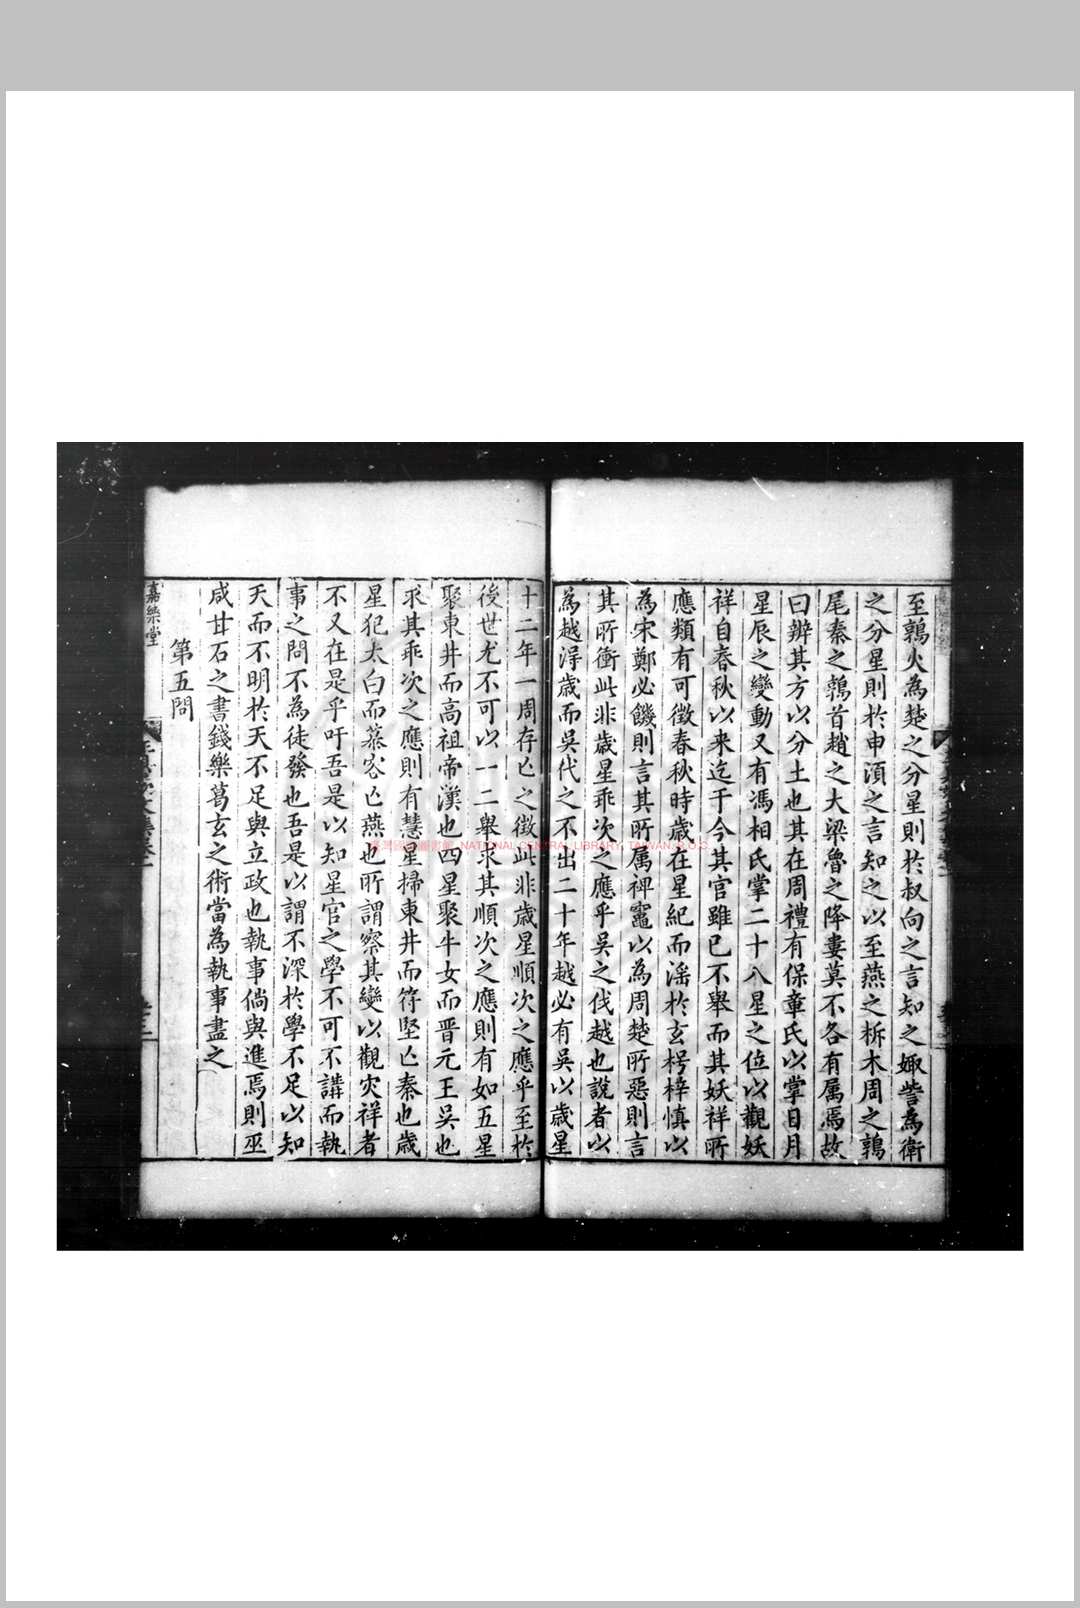 至鶉火為楚之分星則於叔向之言知之娵訾為衛
之分星則於申湏之言知之以至燕之析木周之鶉
尾秦之鶉首趙之大梁魯之降婁莫不各有属焉故
曰辨其方以分土也其在周禮有保章氏以掌日月
星辰之變動又有馮相氏掌二十八星之位以觀妖
祥自春秋以来迄于今其官雖已不舉而其妖祥所
應類有可徵春秋時歲在星紀而滛於玄枵梓慎以
為宋鄭必饑則言其所属禆竈以為周楚所惡則言
其所衝此非歲星乖次之應乎吴之伐越也說者以
為越淂歲而吴代之不出二十年越必有吴以歲星
十二年一周存亡之徵此非歲星順次之應乎至於
後世尤不可以一二舉求其順次之應則有如五星
聚東井而高祖帝漢也四星聚牛女而晋元王吴也
求其乖次之應則有慧星掃東井而苻堅亡秦也歲
星犯太白而慕容亡燕也所謂察其變以觀灾祥者
不又在是乎吁吾是以知星官之學不可不講而執
事之問不為徒發也吾是以謂不深於學不足以知
天而不明於天不足與立政也執事倘與進焉則巫
咸甘石之書錢樂葛玄之術當為執事盡之
第五問
嘉樂堂
臺灣國家圖書館 NATIONAL CENTRAL LIBRARY, TAIWAN, R.O.C